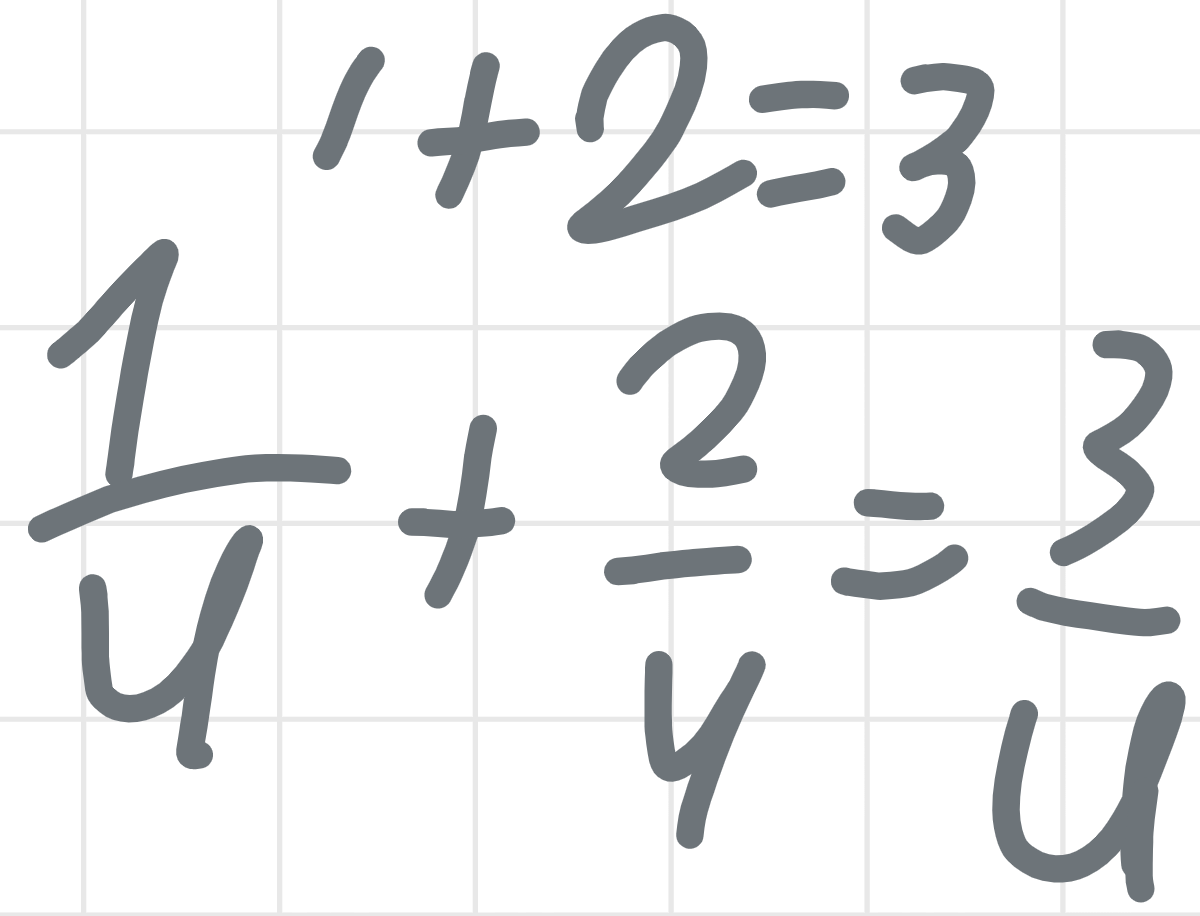 1+2=3
1/4 + 2/4 = 3/4